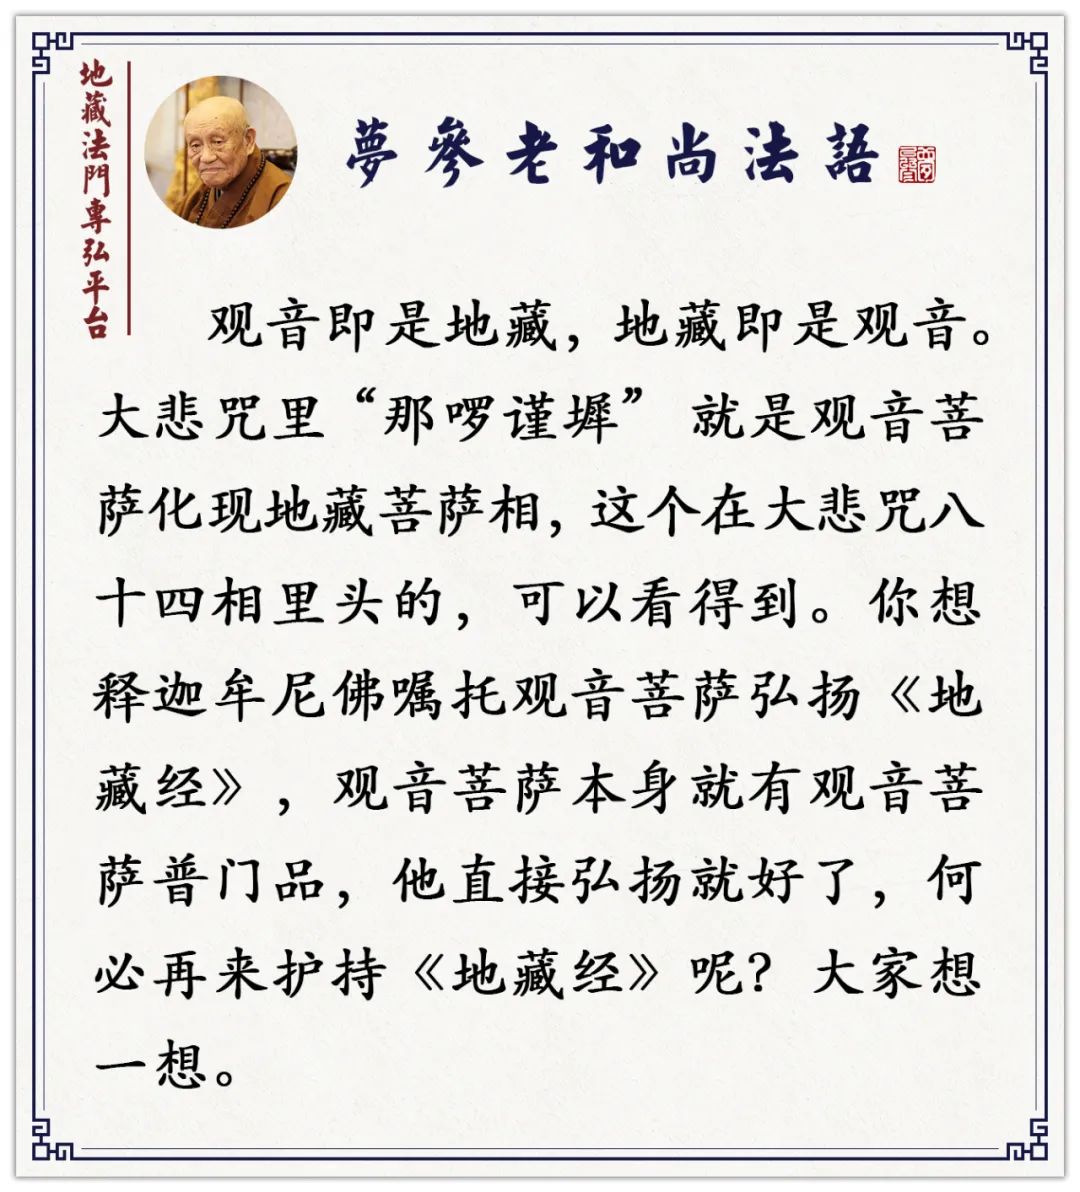 地藏法門專弘平台
夢參老和尚法語
观音即是地藏，地藏即是观音。
大悲咒里“那啰谨墀”就是观音菩
萨化现地藏菩萨相，这个在大悲咒八
十四相里头的，可以看得到。你想
释迦牟尼佛嘱托观音菩萨弘扬《地
藏经》，观音菩萨本身就有观音菩
萨普门品，他直接弘扬就好了，何
必再来护持《地藏经》呢？大家想
一想。